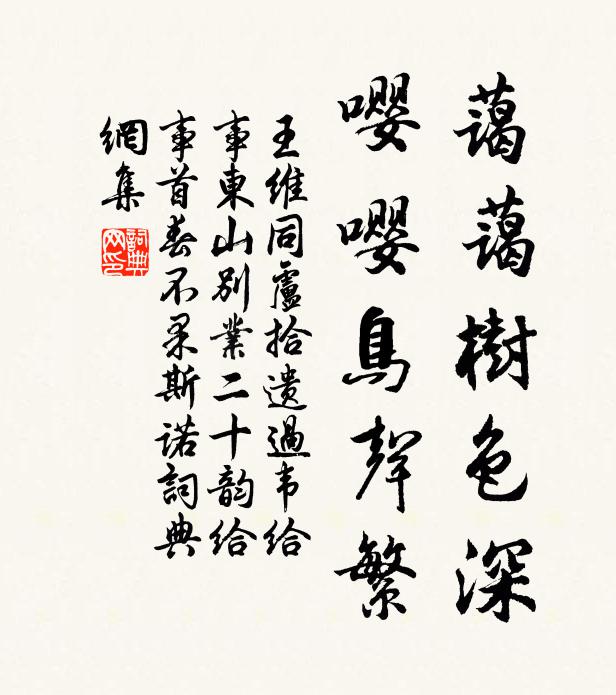 藹藹樹色深
嚶嚶鳥聲繁
王維同盧拾遺過韦給
事東山別業二十韵給
事首春不果斯诺詞典
網集
詞典網印